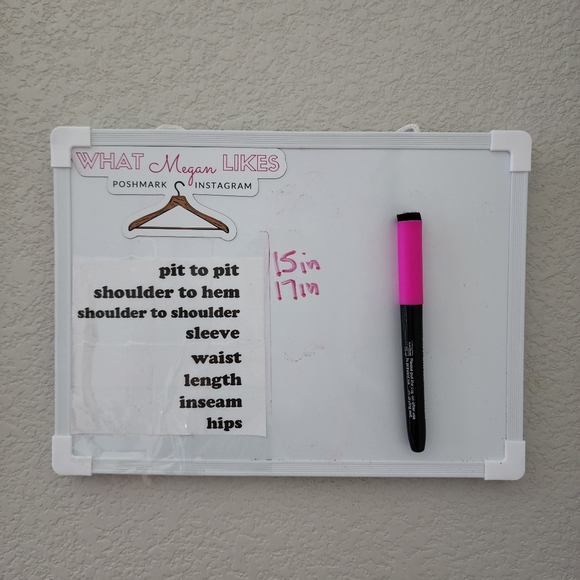 WHAT Megan LIKES
POSHMARK INSTAGRAM
pit to pit 15in
shoulder to hem 17in
shoulder to shoulder
sleeve
waist
length
inseam
hips